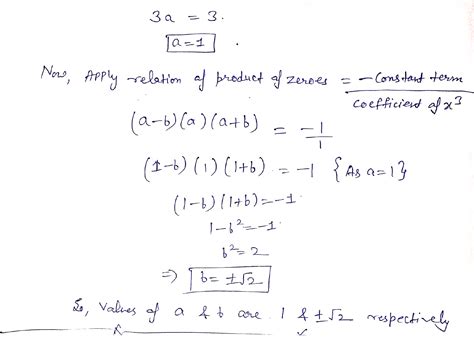 3a = 3.
a=1 .
Now, Apply relation of product of zeroes = -Constant term / Coefficient of x³
(a-b)(a)(a+b) = -1/1
(1-b)(1)(1+b) = -1 {As a=1}
(1-b)(1+b)=-1.
1-b²=-1.
b²=2
⇒ b=±√2
So, values of a & b are 1 & ±√2 respectively